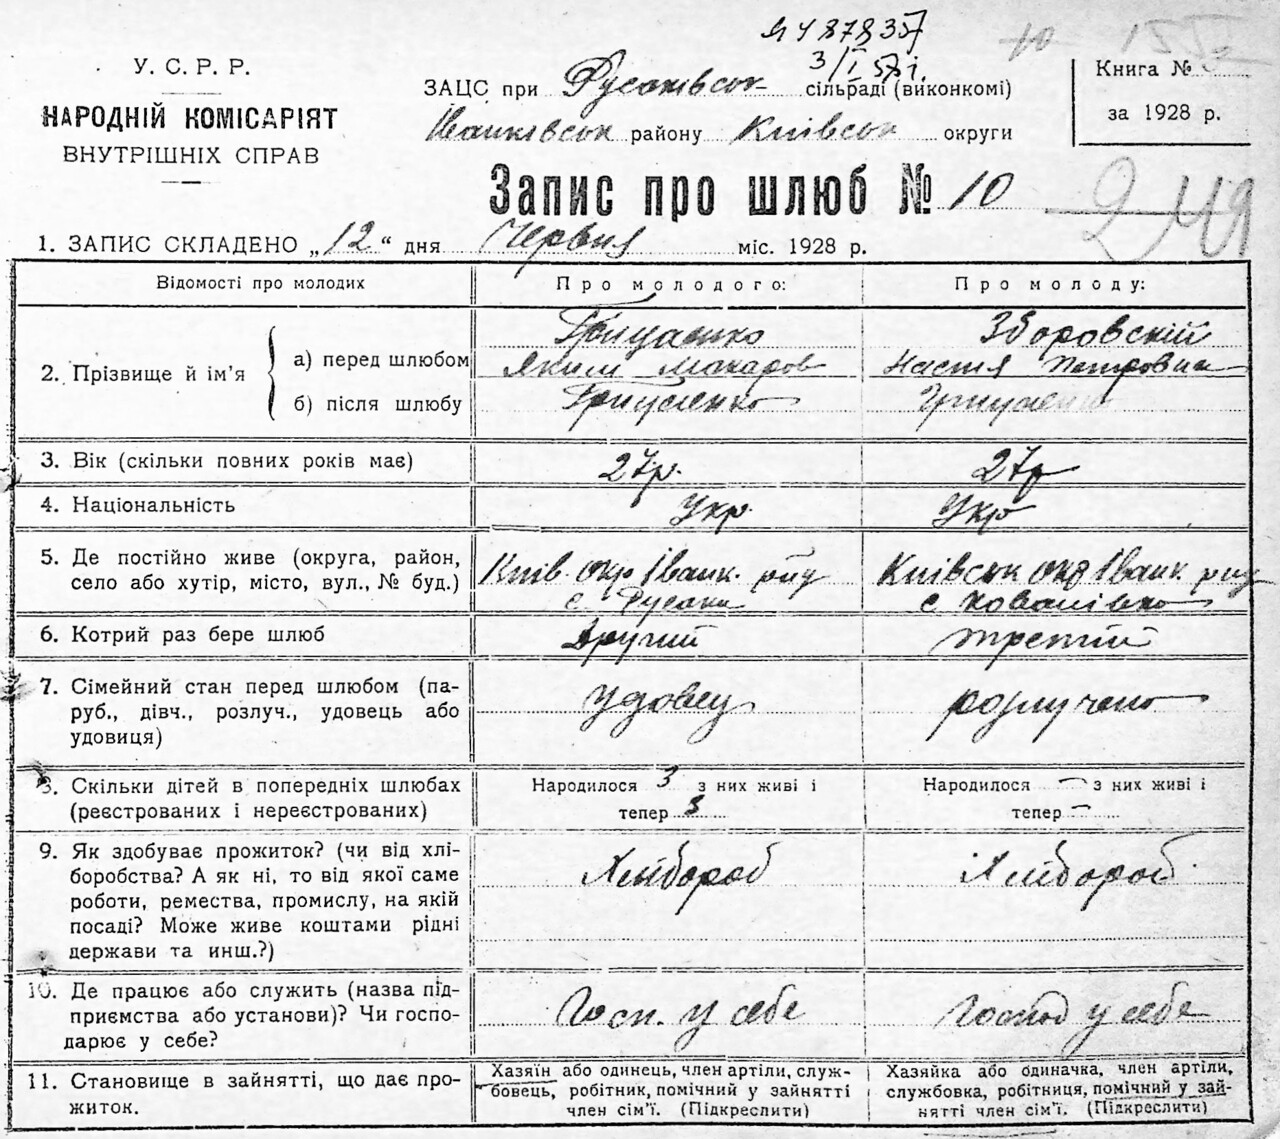 У. С. Р. Р.
НАРОДНІЙ КОМІСАРІЯТ
ВНУТРІШНІХ СПРАВ
3/I 57 г.
ЗАЦС при Русаківськ сільраді (виконкомі)
Іванківськ району Київськ округи
Книга №
за 1928 р.
Запис про шлюб № 10
1. ЗАПИС СКЛАДЕНО „12“ дня Червня міс. 1928 р.
Відомості про молодих
Про молодого:
Про молоду:
2. Прізвище й ім'я
а) перед шлюбом
б) після шлюбу
Грищенко
Яким Макаров
Грищенко
Зборовскій
Настя Петровна
Грищенко
3. Вік (скільки повних років має)
27р.
27р
4. Національність
Укр.
Укр
5. Де постійно живе (округа, район,
село або хутір, місто, вул., № буд.)
Київ. окр Іванк. рну
с. Русаки
Київськ окр Іванк. рну
с Коваливко
6. Котрий раз бере шлюб
Другий
третий
7. Сімейний стан перед шлюбом (па-
руб., дівч., розлуч., удовець або
удовиця)
удовец
розлучено
8. Скільки дітей в попередніх шлюбах
(реєстрованих і нереєстрованих)
Народилося 3 з них живі і
тепер 3
Народилося — з них живі і
тепер —
9. Як здобуває прожиток? (чи від хлі-
боробства? А як ні, то від якої саме
роботи, ремества, промислу, на якій
посаді? Може живе коштами рідні
держави та инш.?)
Хлібороб
Хлібороб
10. Де працює або служить (назва під-
приємства або установи)? Чи госпо-
дарює у себе?
Госп. у себе
Господ у себе
11. Становище в зайнятті, що дає про-
житок.
Хазяїн або одинець, член артілі, служ-
бовець, робітник, помічний у зайнятті
член сім'ї. (Підкреслити)
Хазяйка або одиначка, член артілі,
службовка, робітниця, помічний у зай-
нятті член сім'ї. (Підкреслити)